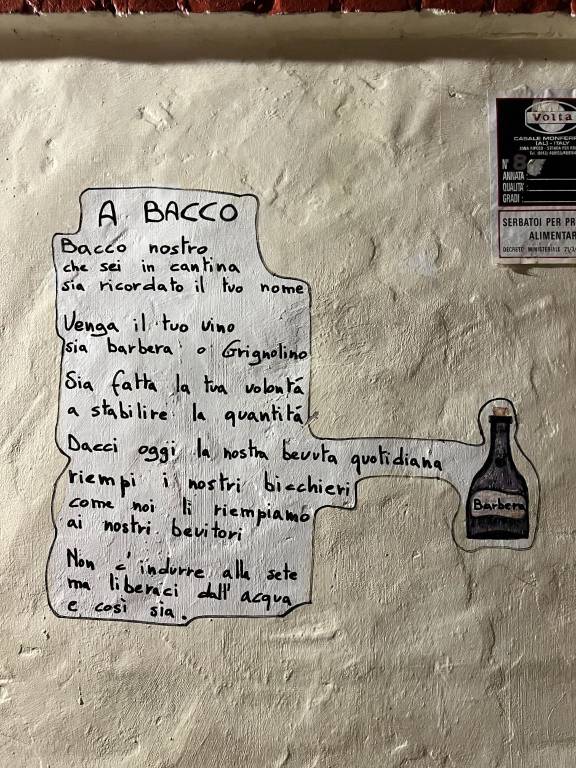 A BACCO
Bacco nostro
che sei in cantina
sia ricordato il tuo nome
Venga il tuo vino
sia barbera o Grignolino
Sia fatta la tua volontá
a stabilire la quantitá
Dacci oggi la nostra bevuta quotidiana
riempi i nostri bicchieri
come noi li riempiamo
ai nostri bevitori
Non c'indurre alla sete
ma liberaci dall'acqua
e così sia.
Barbera
Volta
CASALE MONFERR
(AL) - ITALY
N° 8
ANNATA
QUALITA'
GRADI
SERBATOI PER PR
ALIMENTAR
DECRETO MINISTERIALE 21/3